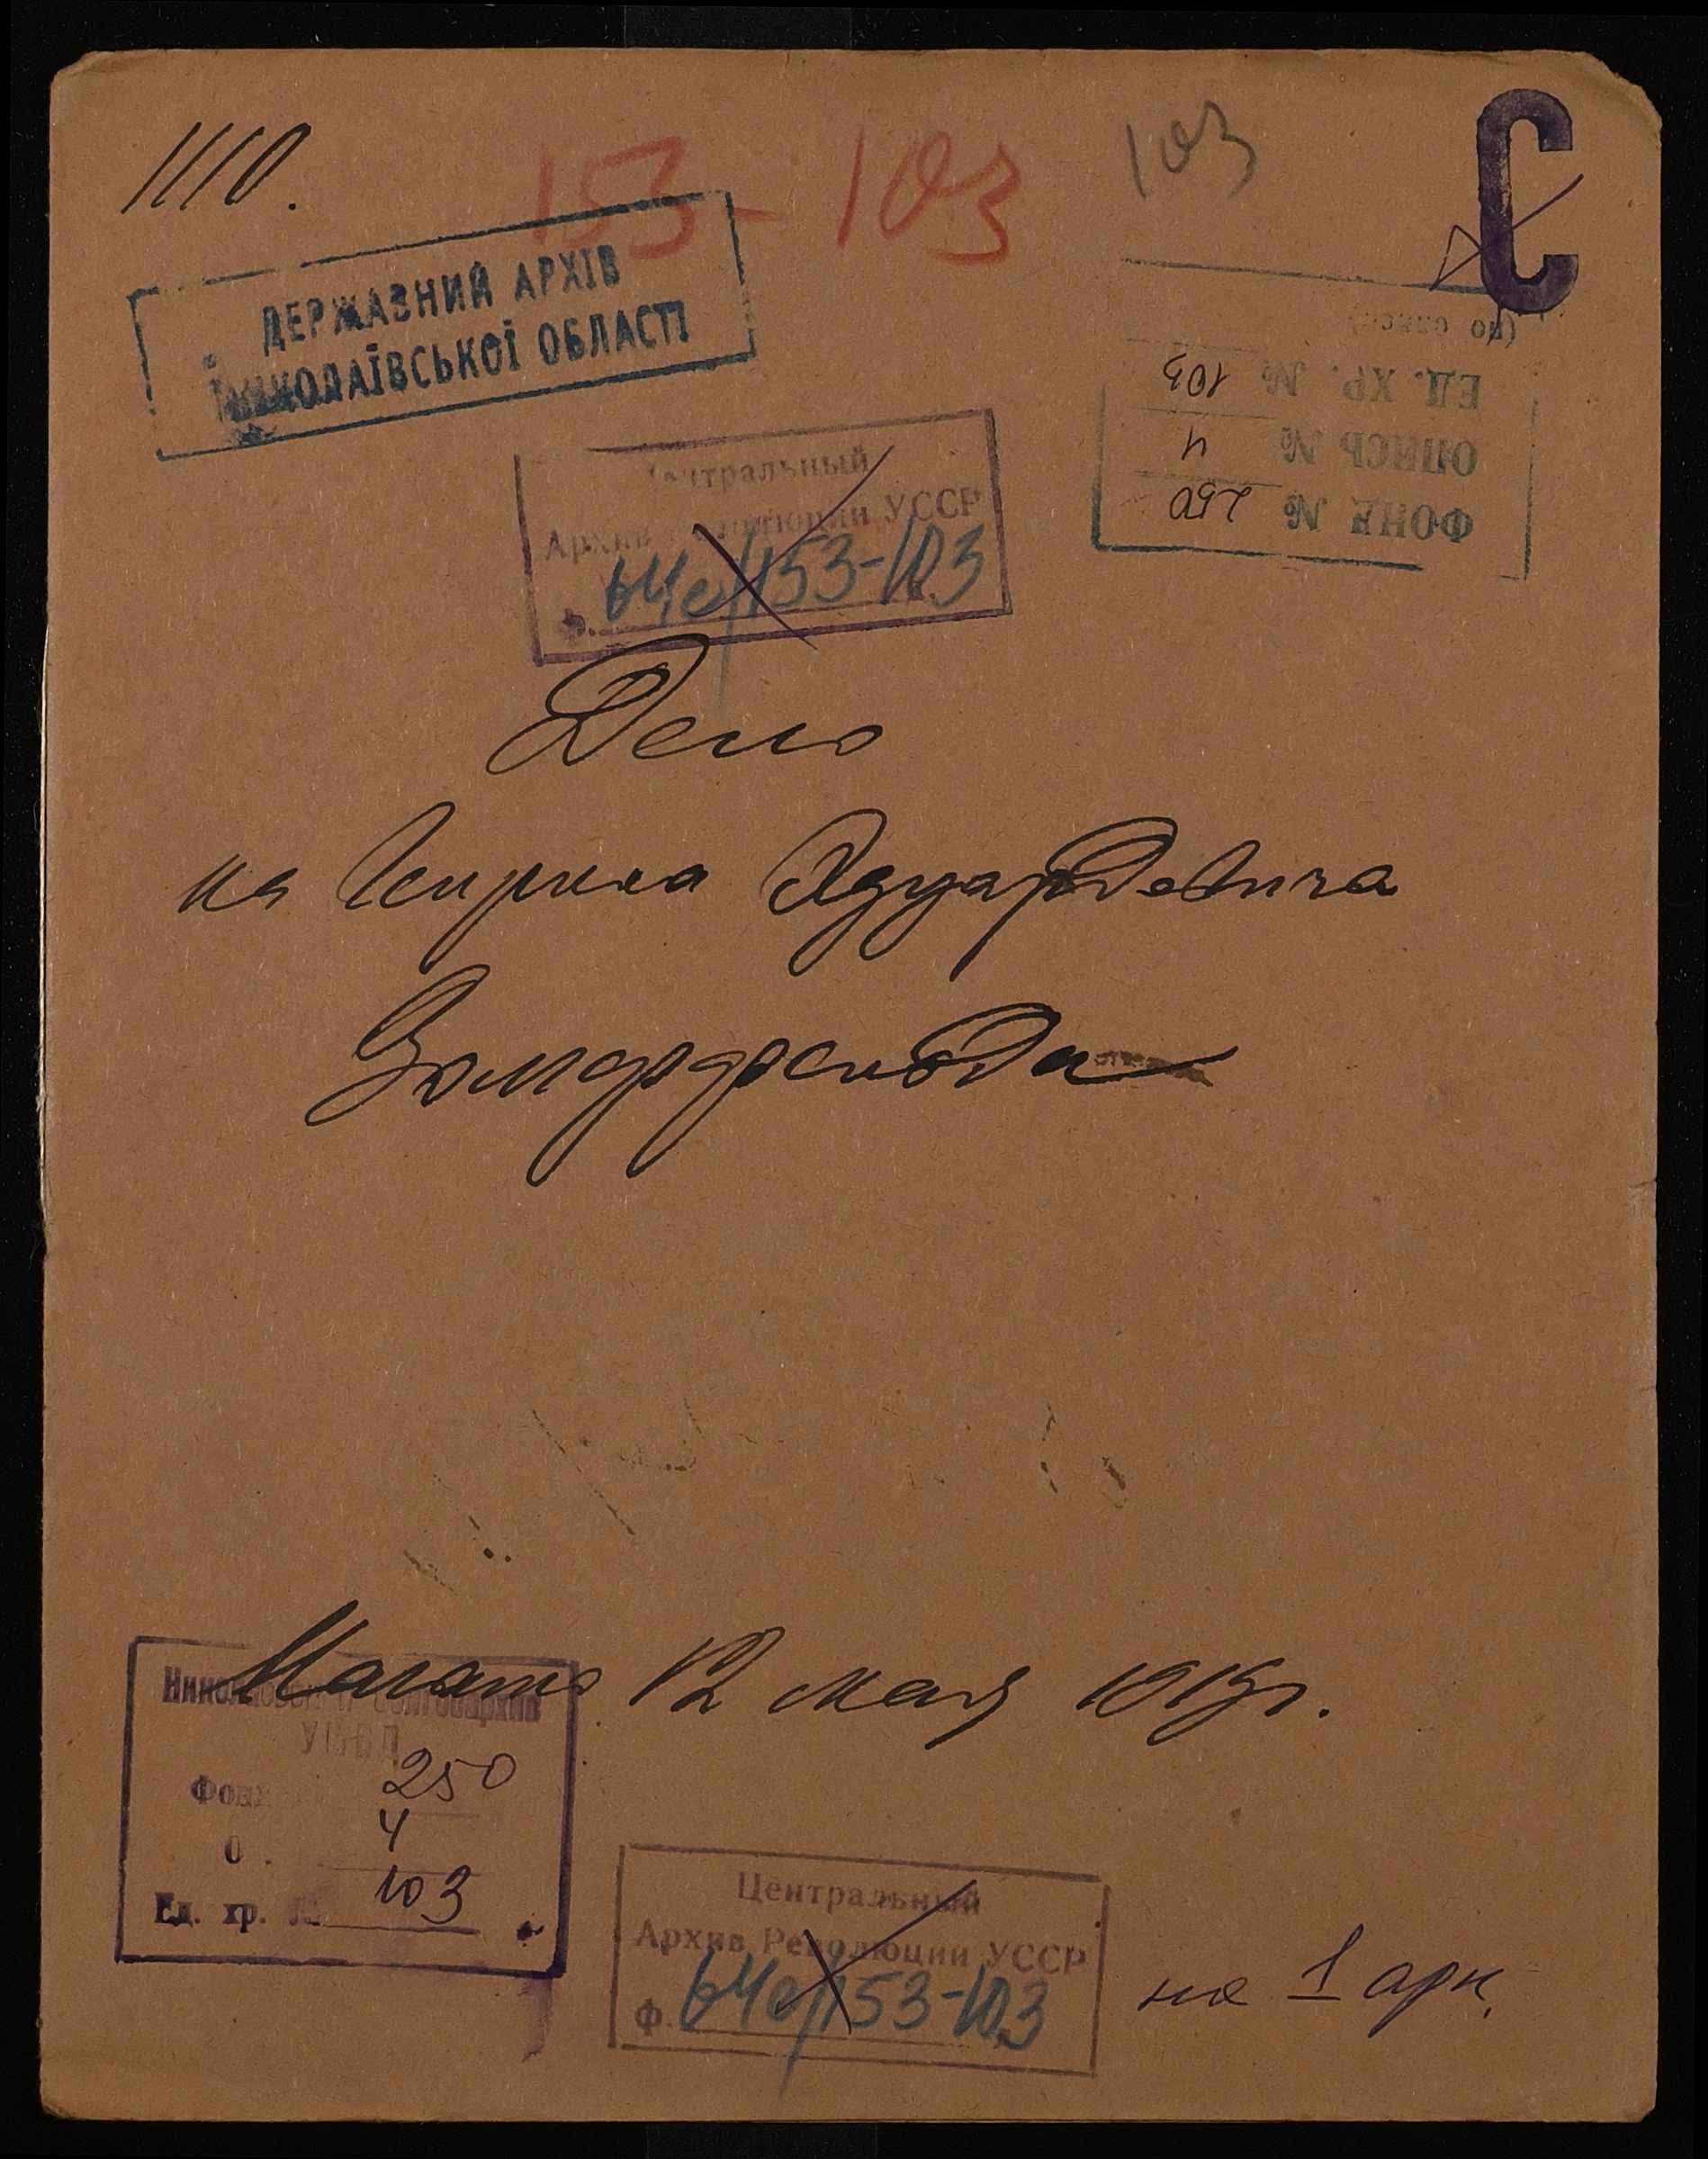 1110.
153-103
103
С
ДЕРЖАВНИЙ АРХІВ
МИКОЛАЇВСЬКОЇ ОБЛАСТІ
ФОНД № 250
ОПИСЬ № 4
ЕД. ХР. № 103
(по описи)
Центральный
Архив Революции УССР
Ф. 64с/153-103
Дело
на Генриха Эдуардовича
Зомерфельда
Начато 12 мая 1919 г.
УНКВД
Фонд 250
О. 4
Ед. хр. № 103
Центральный
Архив Революции УССР
Ф. 64с/153-103
на 1 арк.